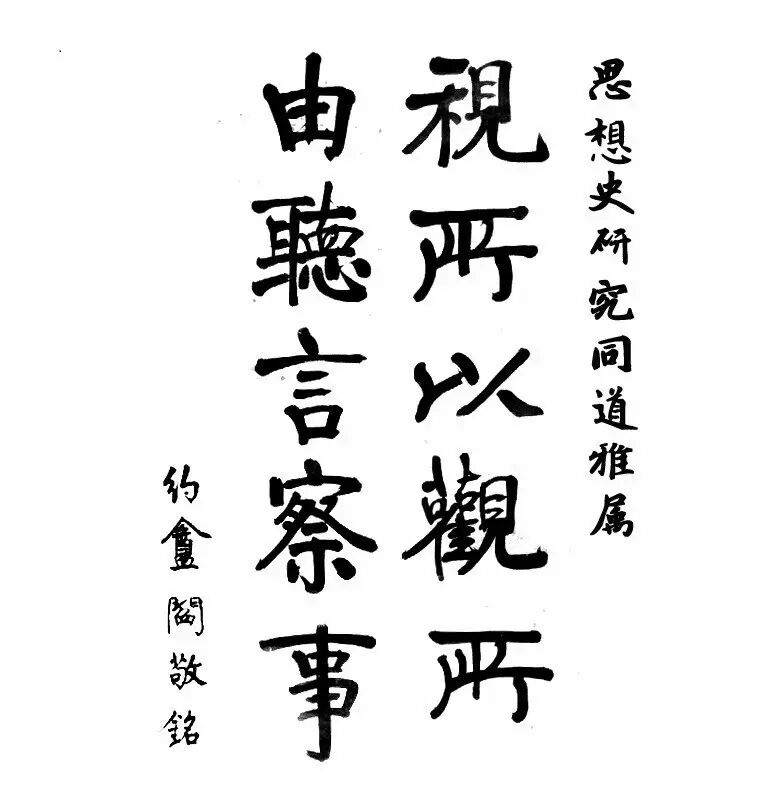 思想史研究同道雅属
視所以觀所
由聽言察事
約盦閻敬銘